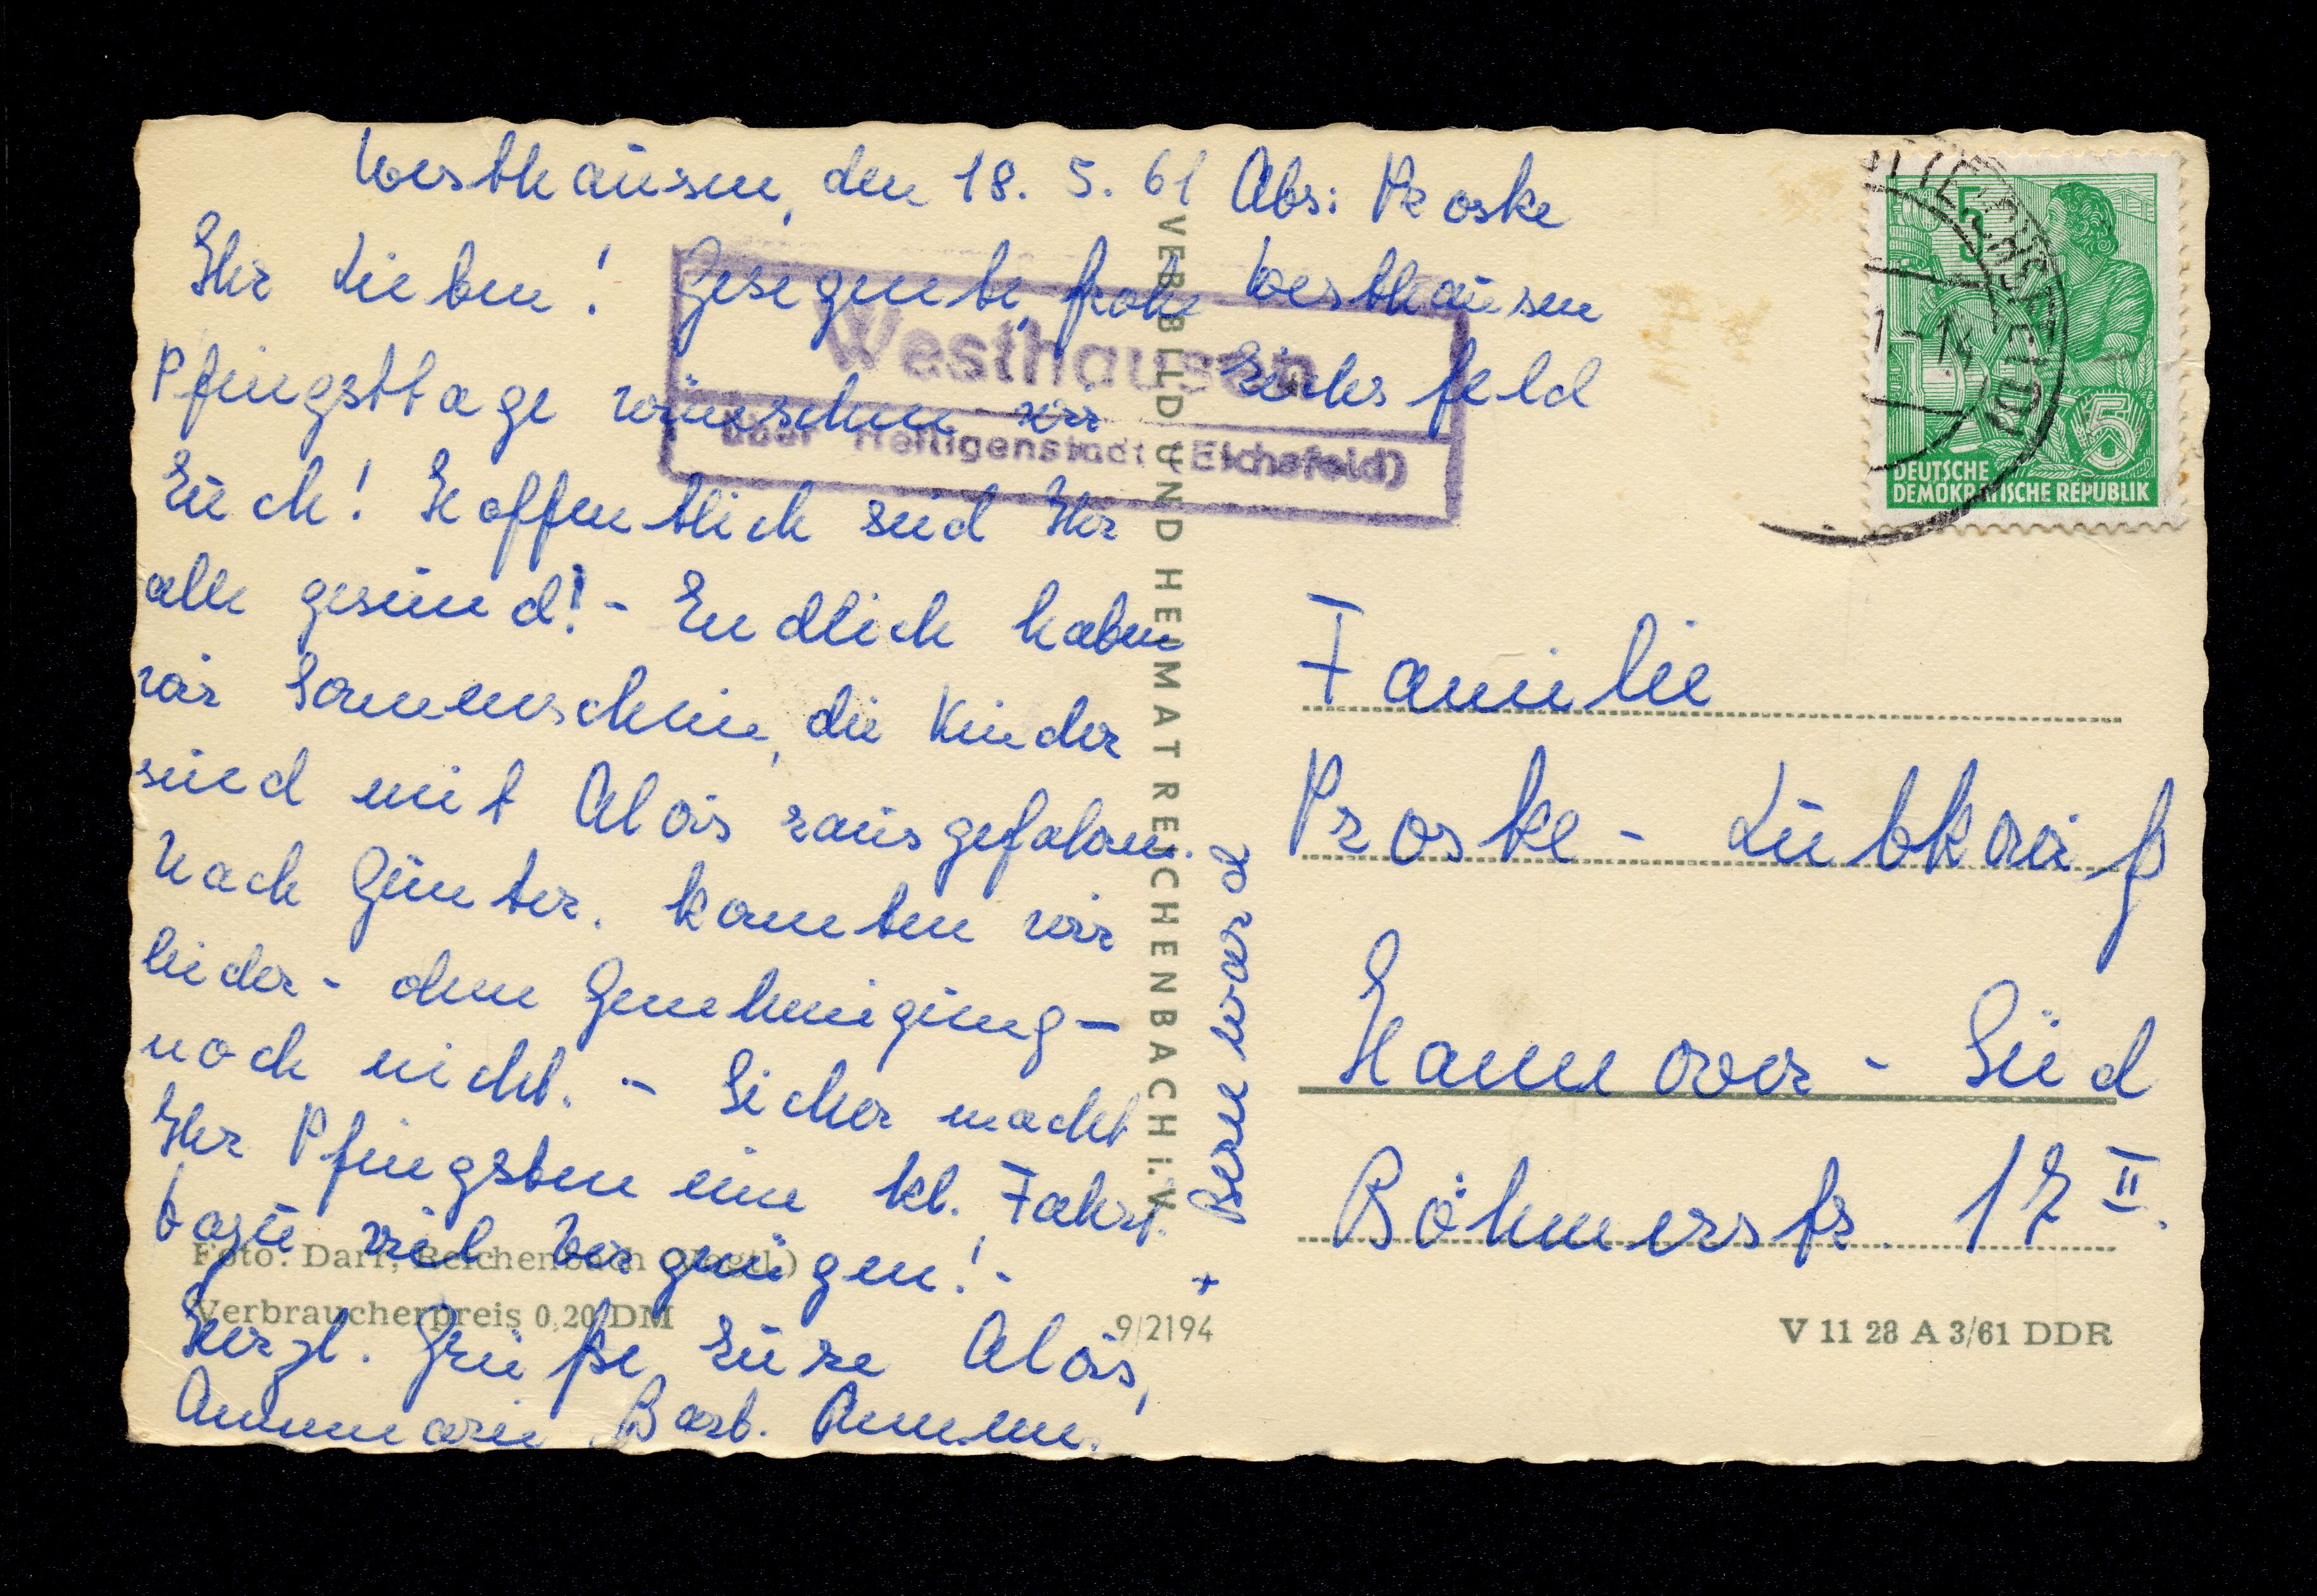 Westhausen, den 18. 5. 61
Ihr Lieben! Gesegnete, frohe
Pfingsttage wünschen wir
Euch! Hoffentlich seid Ihr
alle gesund! - Endlich haben
wir Sonnenschein, die Kinder
sind mit Alois rausgefahren.
Nach Günter. konnten wir
leider - ohne Genehmigung -
noch nicht. - Sicher macht
Ihr Pfingsten eine kl. Fahrt.
Dazu viel Vergnügen! -
Herzl. Grüße, Eure Alois,
Annemarie Barb. Annem.
+ Bernward
Abs: Proske
Westhausen
Eichsfeld
Westhausen
über Heiligenstadt (Eichsfeld)
VEB BILD UND HEIMAT REICHENBACH i. V.
5
1-14
5
DEUTSCHE
DEMOKRATISCHE REPUBLIK
Familie
Hannover - Süd
Böhmerstr. 17 II.
Foto: Darr, Reichenbach (Vogtl.)
Verbraucherpreis 0,20 DM
9/2194
V 11 28 A 3/61 DDR